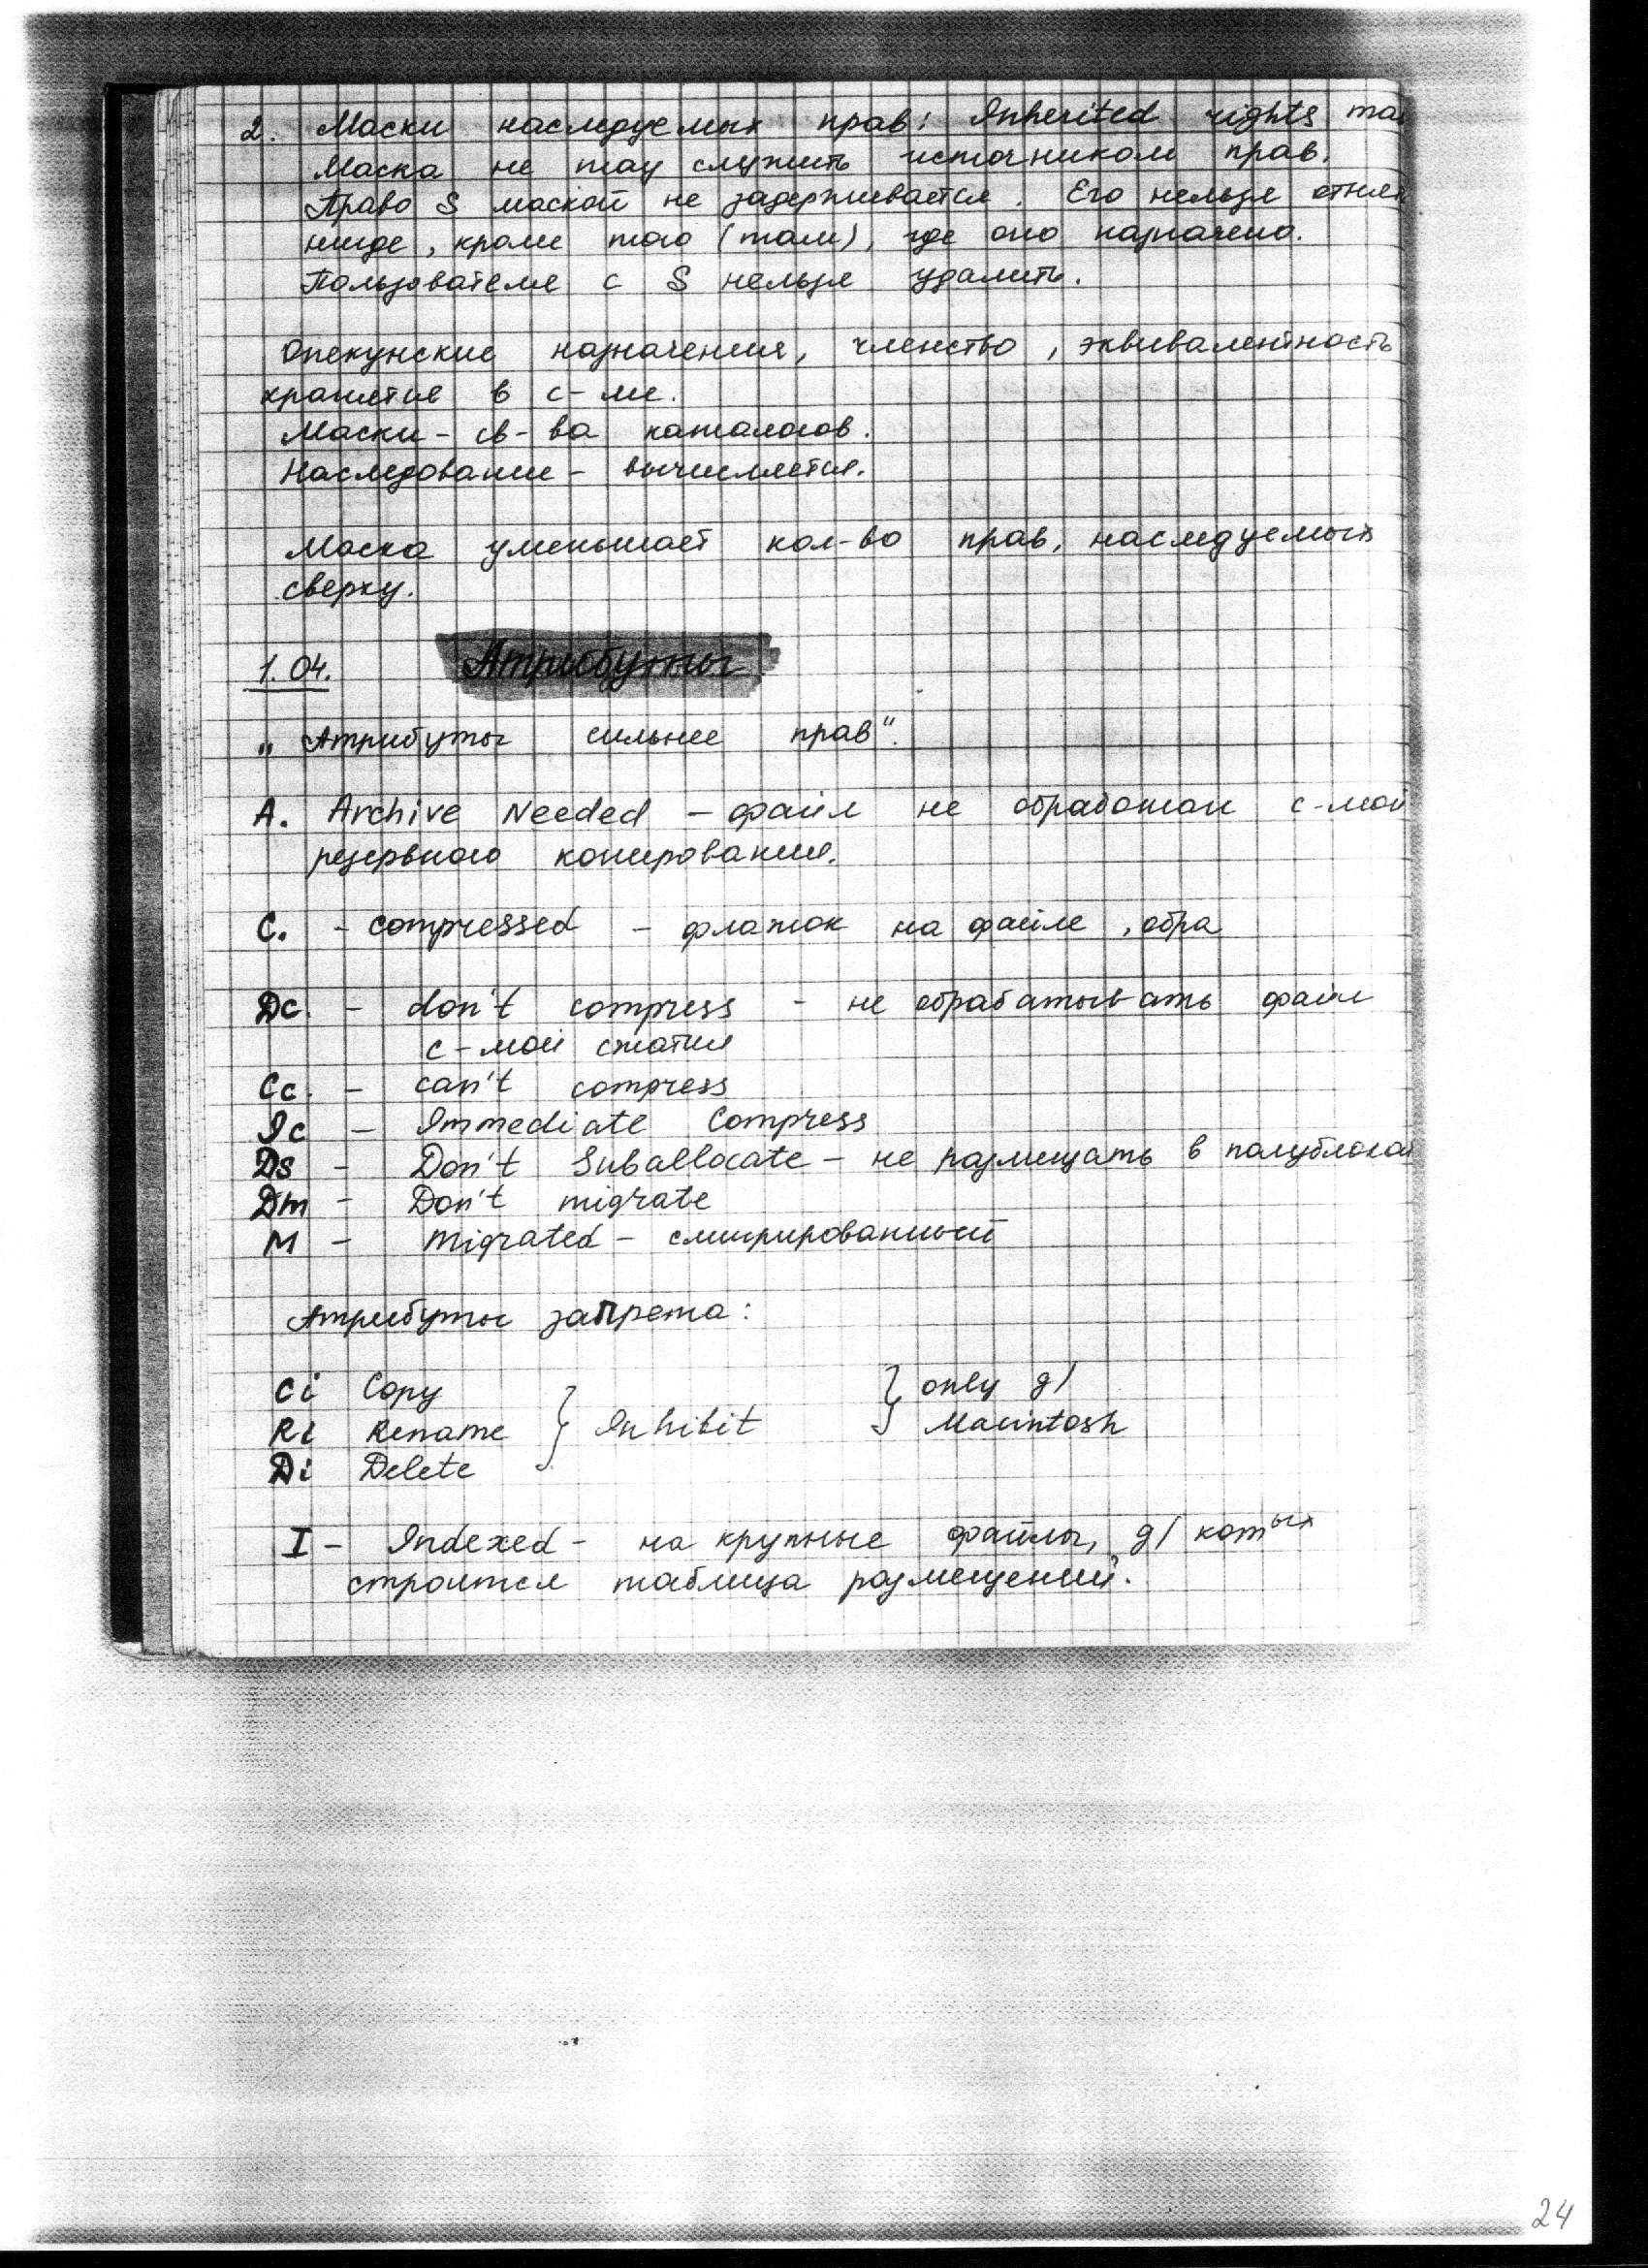 2. Маски наследуемых прав: Inherited rights mas
Маска не может служить источником прав.
Право S маской не задерживается. Его нельзя отнять
нигде, кроме того (там), где оно назначено.
Пользователя с S нельзя удалить.
Опекунские назначения, членство, эквивалентность
хранятся в с-ме.
Маски - св-ва каталогов.
Наследование - вычисляется.
Маска уменьшает кол-во прав, наследуемых
сверху.
1.04. Атрибуты
„Атрибуты сильнее прав".
A. Archive Needed - файл не обработан с-мой
резервного копирования.
C. - compressed - флажок на файле, обра
Dc. - don't compress - не обрабатывать файл
с-мой сжатия
Cc. - can't compress
Ic - Immediate Compress
Ds - Don't Suballocate - не размещать в полублоках
Dm - Don't migrate
M - migrated - смигрированный
Атрибуты запрета:
Ci Copy } only д/
Ri Rename } Inhibit Macintosh
Di Delete
I - Indexed - на крупные файлы, д/ кот-ых
строится таблица размещений.
24